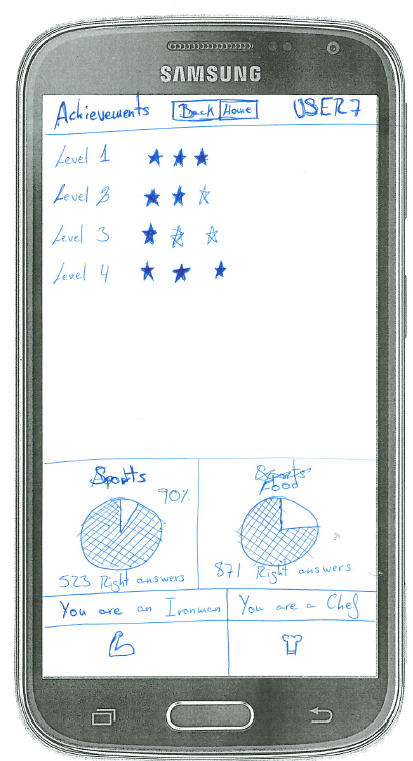 SAMSUNG
Achievements Back Home USER7
Level 1
Level 2
Level 3
Level 4
Sports
90%
523 Right answers
Sports
Food
871 Right answers
You are an Ironman
You are a Chef